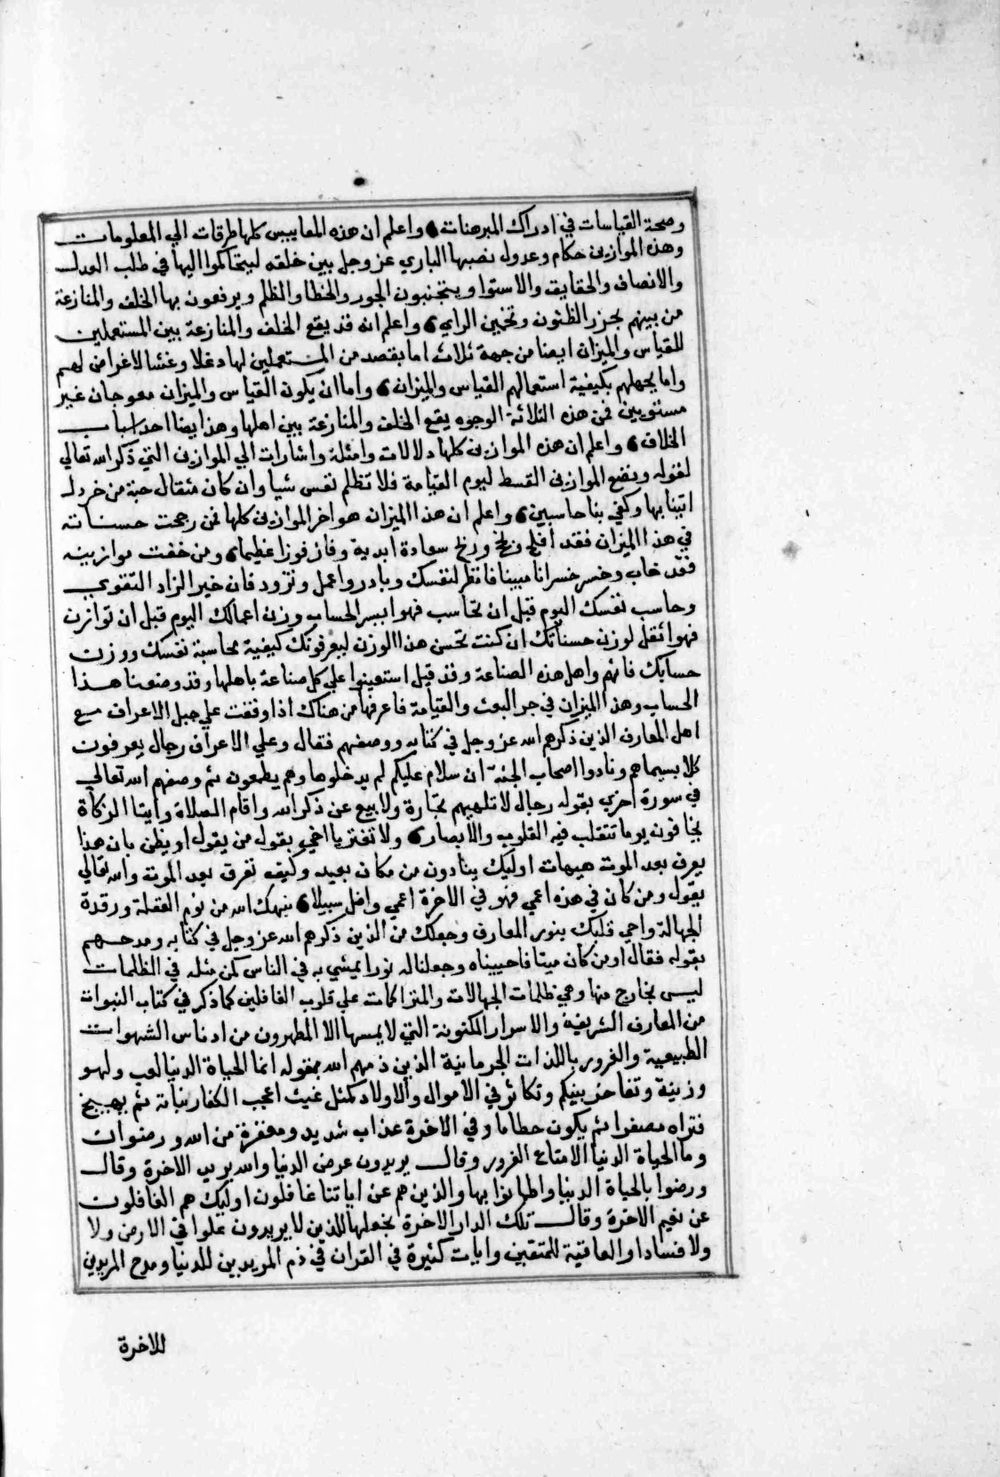 وصحة القياسات في ادراك المبرهنات واعلم ان هذه المقاييس كلها طرقات الي المعلومات
وهذه الموازين حكام وعدول نصبها الباري عز وجل بين خلقه ليتحاكموا اليها في طلب العدل
والانصاف والحقايق والاستوا ويتجنبون الجور والخطا والظلم ويرفعون بها الخلف والمنازعة
من بينهم بحزر الظنون وتخمين الراي واعلم انه قد يقع الخلف والمنازعة بين المستعملين
للقياس والميزان ايضا من جهة ثلاث اما بقصد من المستعملين لها دغلا وغشا لاغراض لهم
واما بجهلهم بكيفية استعمالهم القياس والميزان واما ان يكون القياس والميزان معوجان غير
مستويين فمن هذه الثلاثة الوجوه يقع الخلف والمنازعة بين اهلها وهذا ايضا احد اسباب
الخلاف واعلم ان هذه الموازين كلها دلالات وامثلة واشارات الي الموازين التي ذكر الله تعالي
لقوله ونضع الموازين القسط ليوم القيامة فلا تظلم نفس شيا وان كان مثقال حبة من خردل
اتينا بها وكفي بنا حاسبين واعلم ان هذا الميزان هو اخر الموازين كلها فمن رجحت حسناته
في هذا الميزان فقد افلح ونجح وربح سعادة ابدية وفاز فوزا عظيما ومن خفت موازينه
فقد خاب وخسر خسرانا مبينا فانظر لنفسك وبادر واعمل وتزود فان خير الزاد التقوي
وحاسب نفسك اليوم قبل ان تحاسب فهو ايسر الحساب وزن اعمالك اليوم قبل ان توازن
فهو اثقل لوزن حسناتك ان كنت تحسن هذا الوزن ليعرفونك كيفية محاسبة نفسك ووزن
حسابك فانهم واهل هذه الصناعة وقد قيل استعينوا علي كل صناعة باهلها وقد وضعنا هذا
الحساب وهذا الميزان في جر البعث والقيامة فاعرفها من هناك اذا وقفت علي جبل الاعراف مع
اهل المعارف الذين ذكرهم الله عز وجل في كتابه ووصفهم فقال وعلي الاعراف رجال يعرفون
كلا بسيماهم ونادوا اصحاب الجنة ان سلام عليكم لم يدخلوها وهم يطمعون ثم وصفهم الله تعالي
في سورة اخري بقوله رجال لا تلهيهم تجارة ولا بيع عن ذكر الله واقام الصلاة وايتا الزكاة
يخافون يوما تتقلب فيه القلوب والابصار ولا تغتر يا اخي بقول من يقول او يظن بان هذا
يعرف بعد الموت هيهات اوليك ينادون من مكان بعيد وكيف تعرف بعد الموت والله تعالي
يقول ومن كان في هذه اعمي فهو في الاخرة اعمي واضل سبيلا نبهك الله من نوم الغفلة ورقدة
الجهالة واحي قلبك بنور المعارف وجعلك من الذين ذكرهم الله عز وجل في كتابه ومدحهم
بقوله فقال اومن كان ميتا فاحييناه وجعلنا له نورا يمشي به في الناس كمن مثله في الظلمات
ليس بخارج منها وهي ظلمات الجهالات والمتراكمات علي قلوب الغافلين كما ذكر في كتاب النبوات
من المعارف الشريفة والاسرار المكنونة التي لا يمسها الا المطهرون من ادناس الشهوات
الطبيعية والغرور باللذات الجرمانية الذين ذمهم الله بقوله انما الحياة الدنيا لعب ولهو
وزينة وتفاخر بينكم وتكاثر في الاموال والاولاد كمثل غيث اعجب الكفار نباته ثم يهيج
فتراه مصفرا ثم يكون حطاما وفي الاخرة عذاب شديد ومغفرة من الله ورضوان
وما الحياة الدنيا الا متاع الغرور وقال يريدون عرض الدنيا والله يريد الاخرة وقال
ورضوا بالحياة الدنيا واطمانوا بها والذين هم عن اياتنا غافلون اوليك هم الغافلون
عن نعيم الاخرة وقال تلك الدار الاخرة نجعلها للذين لا يريدون علوا في الارض ولا
ولا فسادا والعاقبة للمتقين وايات كثيرة في القران في ذم المريدين للدنيا ومدح المريدين
للاخرة